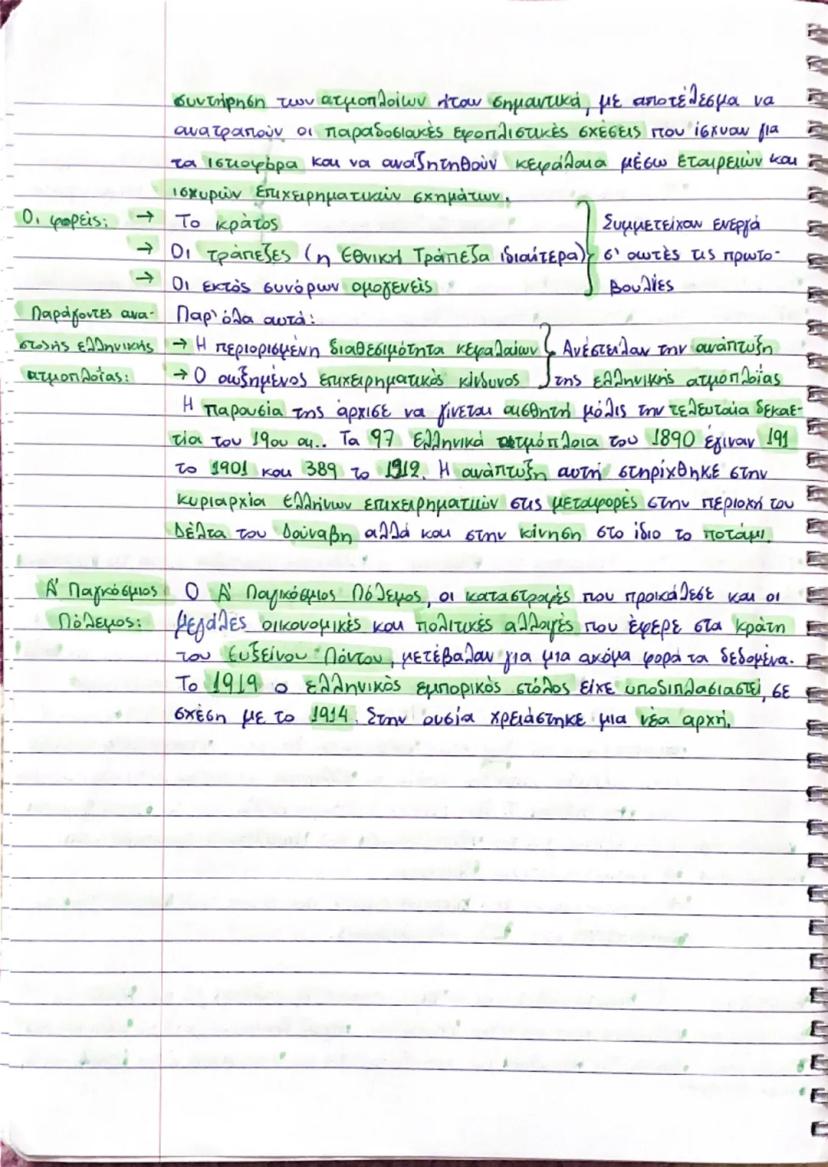 συντήρηση των ατμοπλοίων ήταν σημαντικά, με αποτέλεσμα να
ανατραπούν οι παραδοσιακές εφοπλιστικές σχέσεις που ίσχυαν για
τα ιστιοφόρα και να αναζητηθούν κεφάλαια μέσω εταιρειών και
ισχυρών επιχειρηματικών σχημάτων.
Οι φορείς: → Το κράτος
→ Οι τράπεζες (η Εθνική Τράπεζα ιδιαίτερα)
→ Οι εκτός συνόρων ομογενείς
Συμμετείχαν ενεργά
σ' αυτές τις πρωτο-
βουλίες
Παράγοντες ανα-
στολής ελληνικής
ατμοπλοΐας:
Παρ' όλα αυτά:
→ Η περιορισμένη διαθεσιμότητα κεφαλαίων
→ Ο αυξημένος επιχειρηματικός κίνδυνος
Ανέστειλαν την ανάπτυξη
της ελληνικής ατμοπλοΐας
Η παρουσία της άρχισε να γίνεται αισθητή μόλις την τελευταία δεκαε-
τία του 19ου αι.. Τα 97 ελληνικά ατμόπλοια του 1890 έγιναν 191
το 1901 και 389 το 1912. Η ανάπτυξη αυτή στηρίχθηκε στην
κυριαρχία Ελλήνων επιχειρηματιών στις μεταφορές στην περιοχή του
Δέλτα του Δούναβη αλλά και στην κίνηση στο ίδιο το ποτάμι.
Α' Παγκόσμιος
Πόλεμος:
Ο Α' Παγκόσμιος Πόλεμος, οι καταστροφές που προκάλεσε και οι
μεγάλες οικονομικές και πολιτικές αλλαγές που έφερε στα κράτη
του Ευξείνου Πόντου, μετέβαλαν για μια ακόμα φορά τα δεδομένα.
Το 1919 ο ελληνικός εμπορικός στόλος είχε υποδιπλασιαστεί, σε
σχέση με το 1914. Στην ουσία χρειάστηκε μια νέα αρχή.